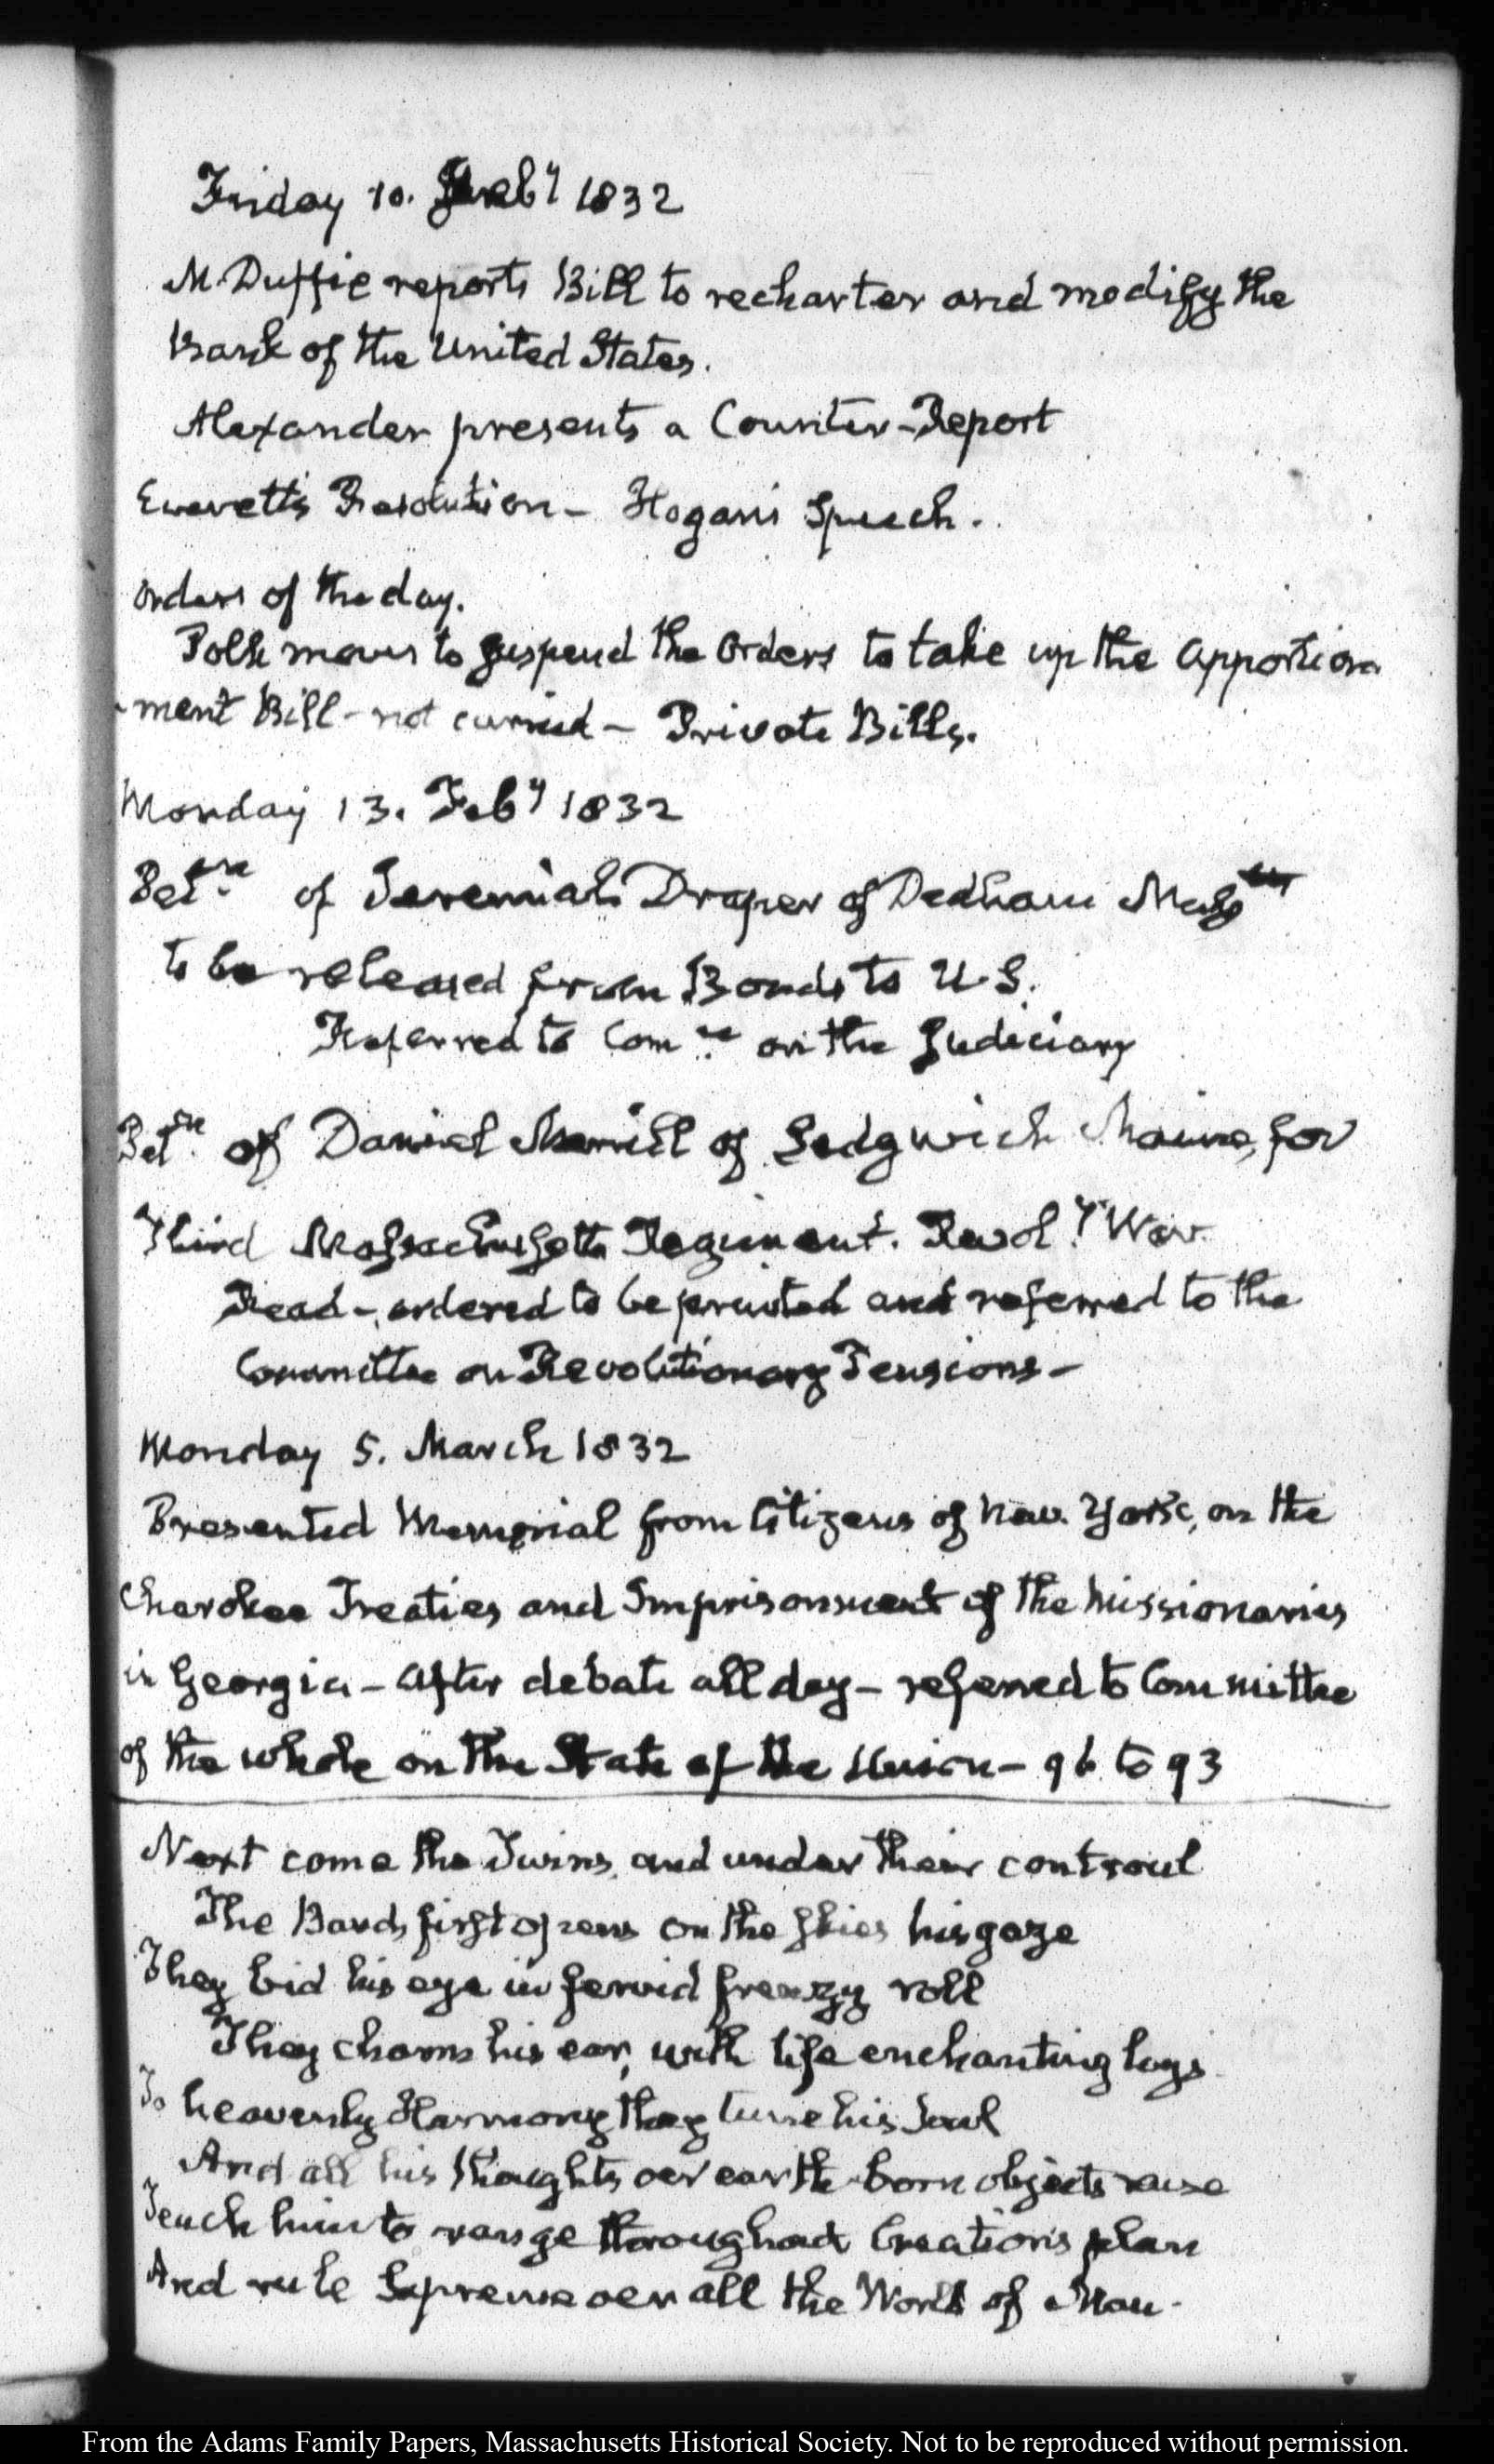 Friday 10. Feby 1832
McDuffie reports Bill to recharter and modify the
Bank of the United States.
Alexander presents a Counter-Report
Everett's Resolution - Hogan's Speech.
Orders of the day.
Polk moves to suspend the Orders to take up the Apportion
-ment Bill - not carried - Private Bills.
Monday 13. Feby 1832
Petn. of Jeremiah Draper of Dedham Mass
to be released from Bonds to U.S.
Referred to Comee. on the Judiciary
Petn. of Daniel Merrill of Sedgwich Maine, for
Third Massachusetts Regiment. Revoly. War.
Read - ordered to be printed and referred to the
Committee on Revolutionary Pensions -
Monday 5. March 1832
Presented Memorial from Citizens of New York, on the
Cherokee Treaties and Imprisonment of the Missionaries
in Georgia - After debate all day - referred to Committee
of the whole on the State of the Union - 96 to 93
Next come the Twins, and under their controul
The Bard first opens on the skies his gaze
They bid his eye in fervid frenzy roll
They charm his ear, with life enchanting lays
To heavenly Harmony they tune his Soul
And all his thoughts oer earth-born objects raise
Teach him to range throughout Creation's plan
And rule Supreme oer all the World of Man.
From the Adams Family Papers, Massachusetts Historical Society. Not to be reproduced without permission.